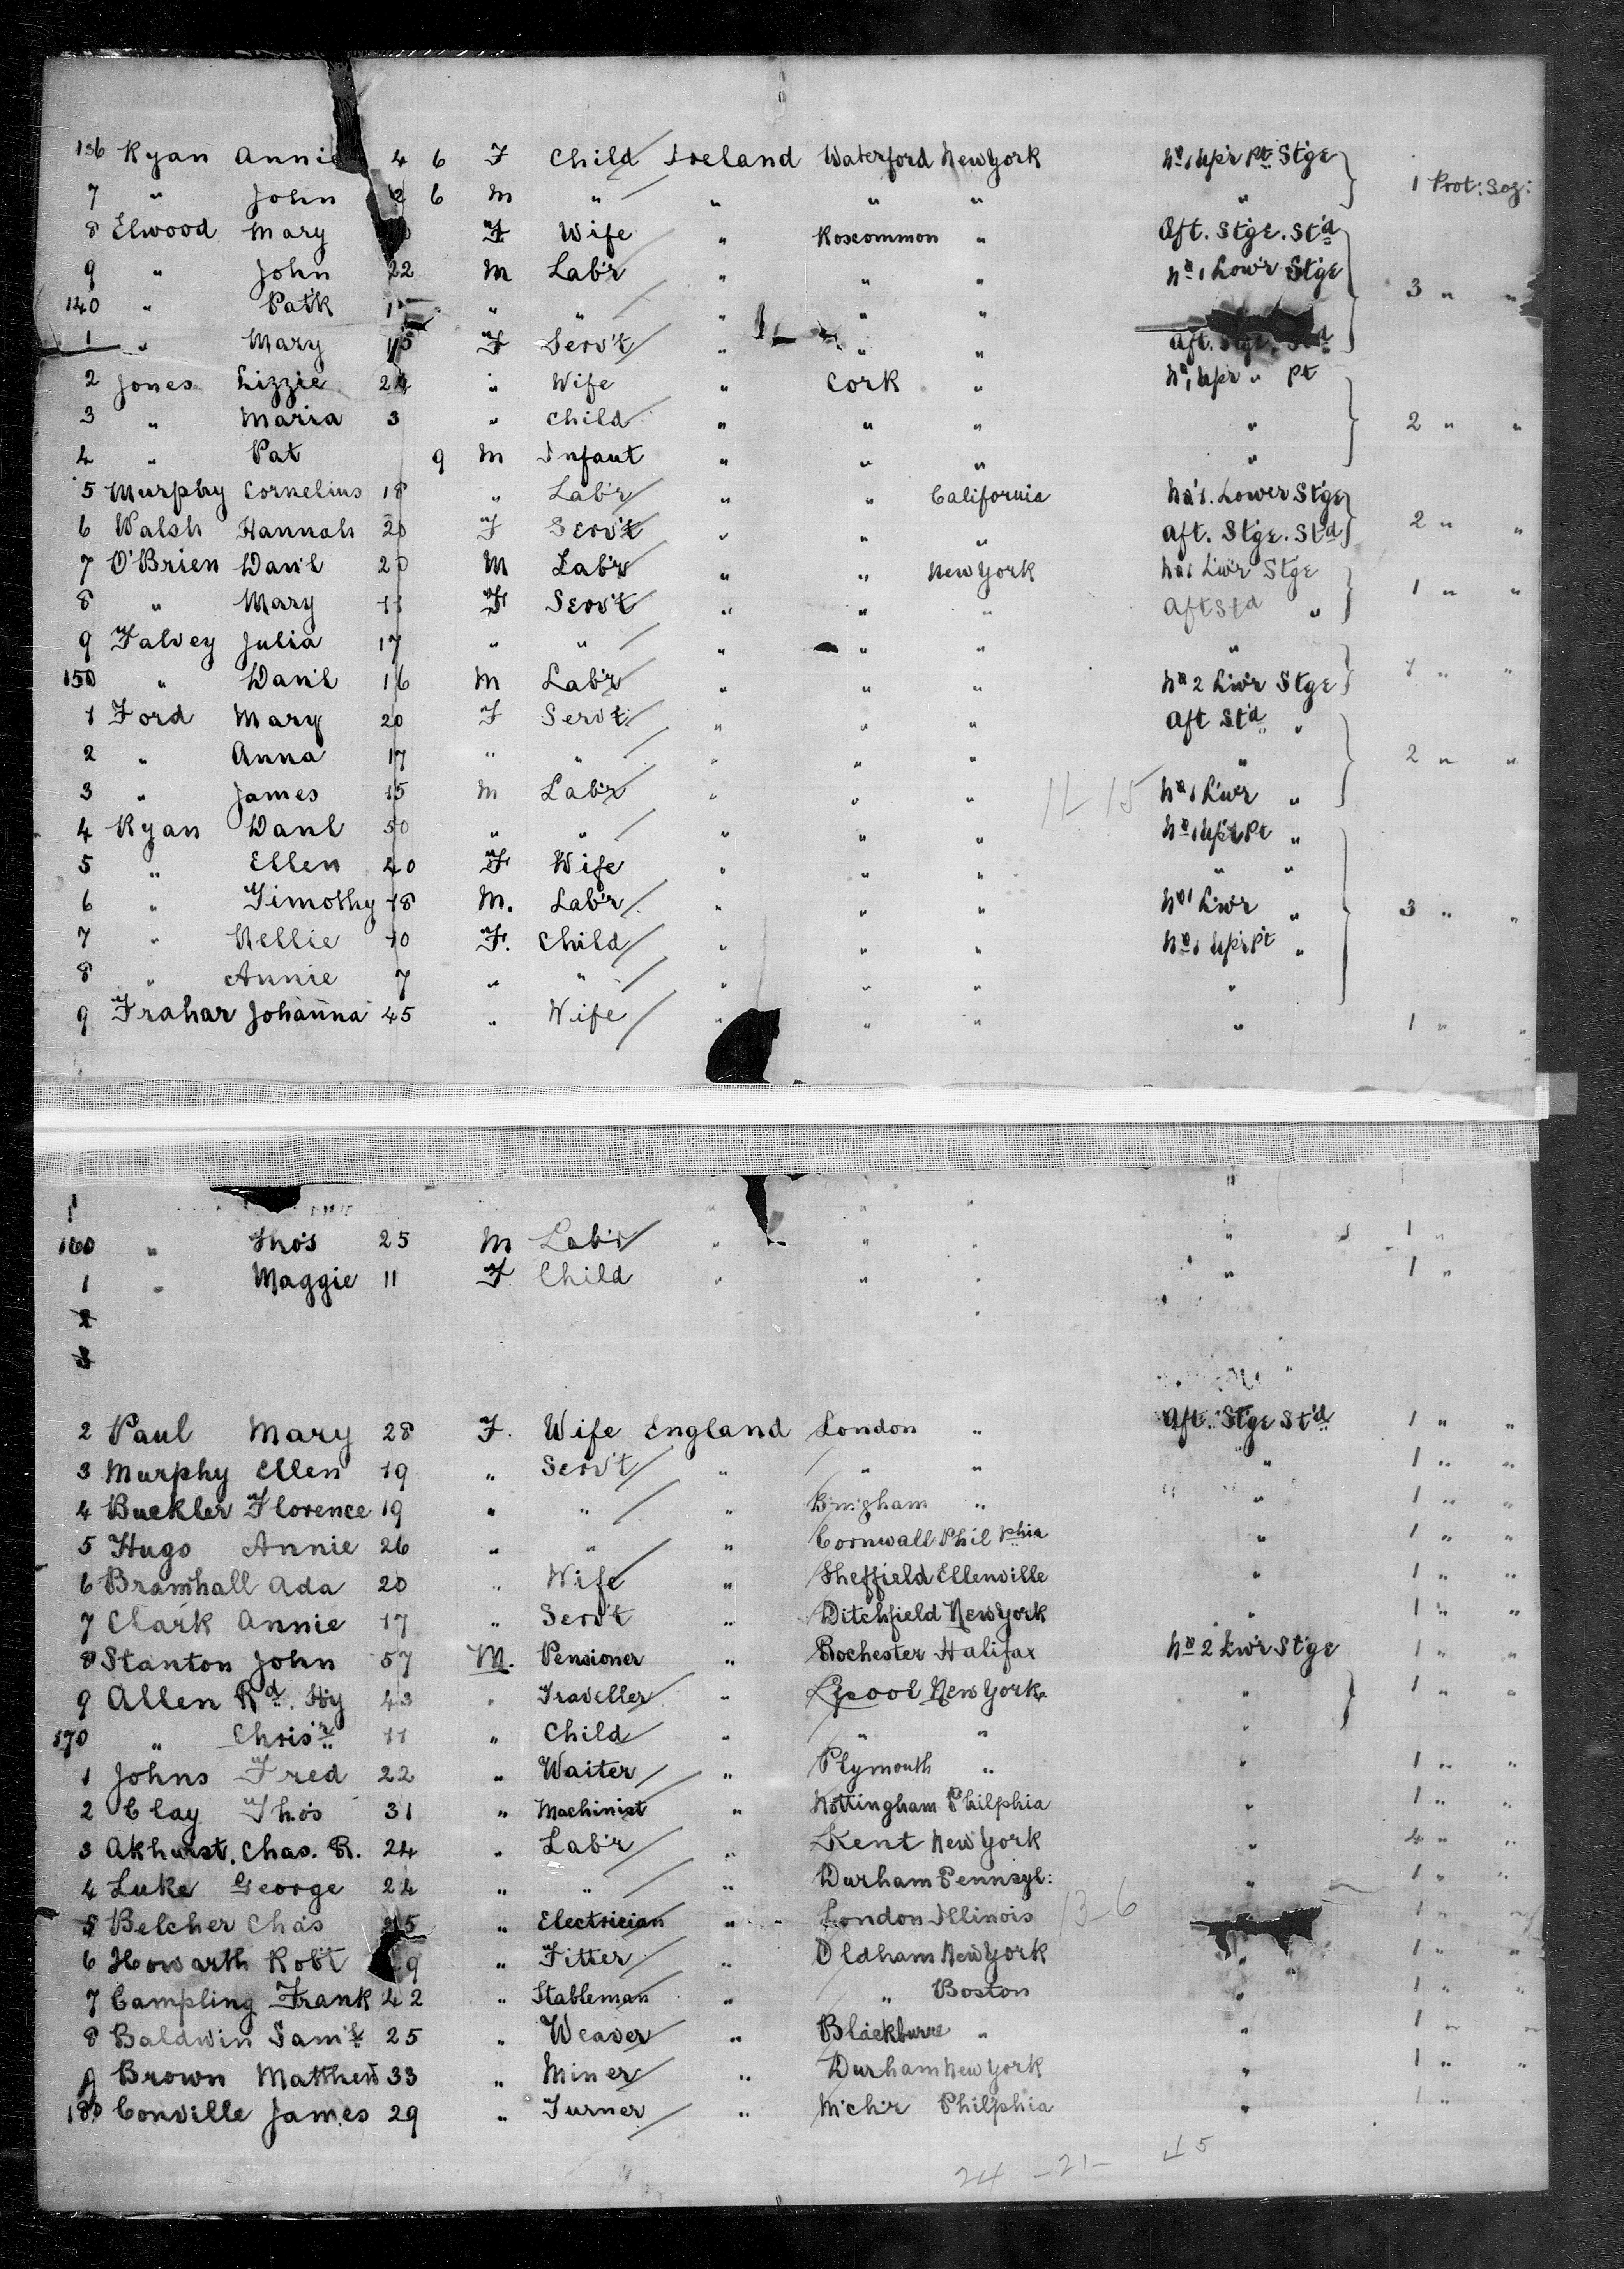 136 Ryan Annie 4 6 F Child Ireland Waterford New York No 1 Upr Pt Stge
7 " John 2 6 M " " " " " 1 Prot: Seg:
8 Elwood Mary F Wife " Roscommon " Aft. Stge. St'd
9 " John 22 M Lab'r " " " No 1 Low'r Stge 3 " "
140 " Patk " " " " "
1 " Mary 15 F Serv't " " " Aft. Stge. Std
2 Jones Lizzie " Wife " Cork " No 1 Upr " Pt
3 " Maria 3 " Child " " " " 2 " "
4 " Pat 9 M Infant " " " "
5 Murphy Cornelius 18 " Lab'r " " California No 1. Lower Stge
6 Walsh Hannah 20 F Serv't " " " Aft. Stge. Std 2 " "
7 O'Brien Dan'l 20 M Lab'r " " New York No 1 Lw'r Stge
8 " Mary F Serv't " " " Aft Std " 1 " "
9 Falvey Julia 17 " " " " " "
150 " Dan'l 16 M Lab'r " " " No 2 Lw'r Stge " "
1 Ford Mary 20 F Servt " " " Aft St'd "
2 " Anna 17 " " " " " " 2 " "
3 " James 15 M Lab'r " " " 11-15 No 1 Lwr "
4 Ryan Danl 50 " " " " " No 1 Upr Pt "
5 " Ellen 40 F Wife " " " " "
6 " Timothy 18 M. Lab'r " " " No 1 Lwr " 3 " "
7 " Nellie 10 F. Child " " " No 1 Upr Pt "
8 " Annie 7 " " " " " "
9 Frahar Johanna 45 " Wife " " " " 1 " "
160 " Thos 25 M Lab'r " " " " 1 "
1 " Maggie 11 F Child " " " " 1 "
2
3
2 Paul Mary 28 F. Wife England London " Aft. Stge St'd 1 " "
3 Murphy Ellen 19 " Serv't " " " " 1 " "
4 Buckler Florence 19 " " " B'mgham " " 1 " "
5 Hugo Annie 26 " " " Cornwall Philphia " 1 " "
6 Bramhall Ada 20 " Wife " Sheffield Ellenville " 1 " "
7 Clark Annie 17 " Serv't " Ditchfield New York " 1 " "
8 Stanton John 57 M. Pensioner " Rochester Halifax No 2 Lwr Stge 1 " "
9 Allen Rd. Hy 43 " Traveller " L'pool New York " 1 " "
170 " Chris'r 11 " Child " " " "
1 Johns Fred 22 " Waiter " Plymouth " " 1 " "
2 Clay Thos 31 " Machinist " Nottingham Philphia " 1 " "
3 Akhurst. Chas. R. 24 " Lab'r " Kent New York " 4 " "
4 Luke George 24 " " " Durham Pennsyl: " 1 " "
5 Belcher Chas " Electrician " London Illinois 13-6 1 " "
6 Howarth Robt " Fitter " Oldham New York " 1 " "
7 Campling Frank 42 " Stableman " " Boston " 1 " "
8 Baldwin Sam'l 25 " Weaver " Blackburne " " 1 " "
9 Brown Matthew 33 " Miner " Durham New York " 1 " "
180 Conville James 29 " Turner " M'ch'r Philphia " 1 "
24 -21- 45